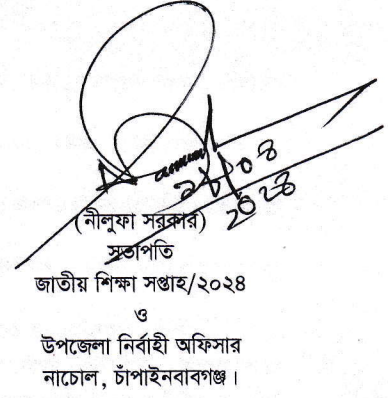 (নীলুফা সরকার)
সভাপতি
জাতীয় শিক্ষা সপ্তাহ/২০২৪
ও
উপজেলা নির্বাহী অফিসার
নাচোল, চাঁপাইনবাবগঞ্জ।